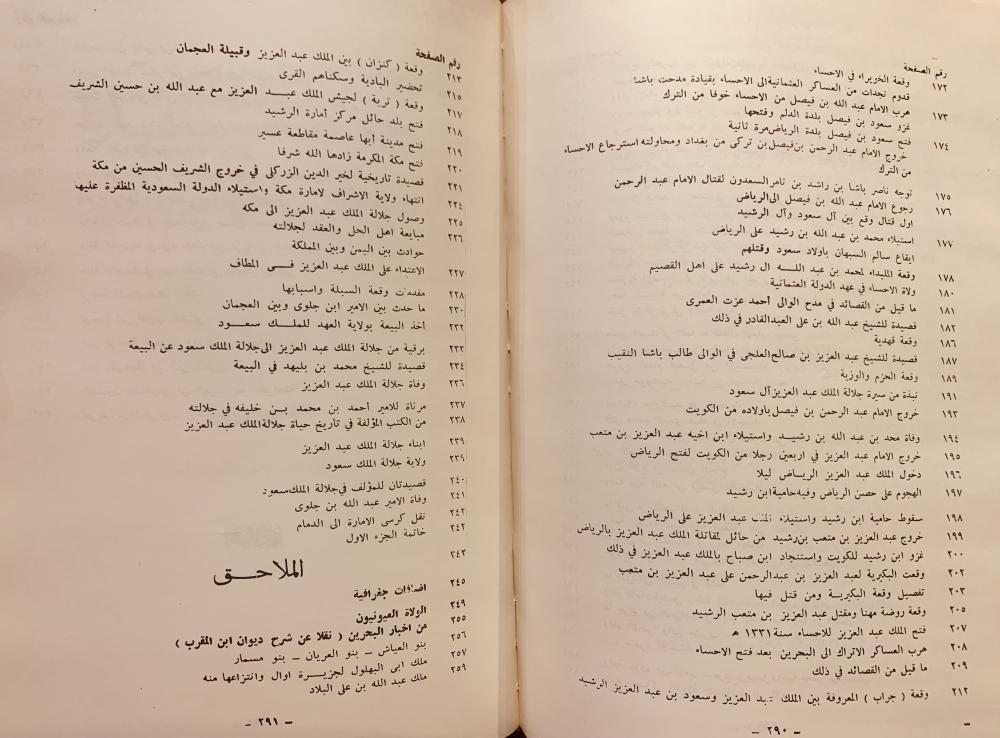 رقم الصفحة
وقعة الخويراء في الاحساء
١٧٢ قدوم نجدات من العساكر العثمانية الى الاحساء بقيادة مدحت باشا
هرب الامام عبد الله بن فيصل من الاحساء خوفا من الترك
١٧٣ غزو سعود بن فيصل بلدة الدلم وفتحها
فتح سعود بن فيصل بلدة الرياض مرة ثانية
١٧٤ خروج الامام عبد الرحمن بن فيصل بن تركى من بغداد ومحاولته استرجاع الاحساء
من الترك
١٧٥ توجه ناصر باشا بن راشد بن ثامر السعدون لقتال الامام عبد الرحمن
١٧٦ رجوع الامام عبد الله بن فيصل الى الرياض
اول قتال وقع بين آل سعود وآل الرشيد
١٧٧ استيلاء محمد بن عبد الله بن رشيد على الرياض
ايقاع سالم السبهان باولاد سعود وقتلهم
١٧٨ وقعة المليداء لمحمد بن عبد اللـــه ال رشيد على اهل القصيم
١٨٠ ولاة الاحساء في عهد الدولة العثمانية
١٨١ ما قيل من القصائد في مدح الوالى أحمد عزت العمرى
١٨٢ قصيدة للشيخ عبد الله بن على العبد القادر في ذلك
١٨٦ وقعة قهدية
١٨٧ قصيدة للشيخ عبد العزيز بن صالح العلجى في الوالى طالب باشا النقيب
١٨٩ وقعة الحزم والوزية
١٩١ نبذة من سيرة جلالة الملك عبد العزيز آل سعود
١٩٣ خروج الامام عبد الرحمن بن فيصل باولاده من الكويت
١٩٤ وفاة محمد بن عبد الله بن رشيـــد واستيلاء ابن اخيه عبد العزيز بن متعب
١٩٥ خروج الامام عبد العزيز في اربعين رجلا من الكويت لفتح الرياض
١٩٦ دخول الملك عبد العزيز الريـــاض ليلا
١٩٧ الهجوم على حصن الرياض وفيه حامية ابن رشيد
١٩٨ سقوط حامية ابن رشيد واستيلاء الملك عبد العزيز على الرياض
١٩٩ خروج عبد العزيز بن متعب بن رشيد من حائل لمقاتلة الملك عبد العزيز بالرياض
٢٠٠ غزو ابن رشيد للكويت واستنجاد ابن صباح بالملك عبد العزيز في ذلك
٢٠٢ وقعت البكيرية لعبد العزيز بن عبد الرحمن على عبد العزيز بن متعب
٢٠٣ تفصيل وقعة البكيريـــة ومن قتل فيها
٢٠٥ وقعة روضة مهنا ومقتل عبد العزيز بن متعب الرشيد
٢٠٧ فتح الملك عبد العزيز للاحساء سنة ١٣٣١ هـ
٢٠٨ هرب العساكر الاتراك الى البحرين بعد فتح الاحساء
٢٠٩ ما قيل من القصائد في ذلك
٢١٢ وقعة ( جراب ) المعروفة بين الملك عبد العزيز وسعود بن عبد العزيز الرشيد
– ٢٩٠ –
رقم الصفحة
وقعة ( كنزان ) بين الملك عبد العزيز وقبيلة العجمان
٢١٣ تحضير البادية وسكناهم القرى
٢١٥ وقعة ( تربة ) لجيش الملك عبـــد العزيز مع عبد الله بن حسين الشريف
٢١٧ فتح بلد حائل مركز أمارة الرشيد
٢١٨ فتح مدينة أبها عاصمة مقاطعة عسير
٢١٩ فتح مكة المكرمة زادها الله شرفا
٢٢٠ قصيدة تاريخية لخير الدين الزركلى في خروج الشريف الحسين من مكة
٢٢١ انتهاء ولاية الاشراف لامارة مكة واستيلاء الدولة السعودية المظفرة عليها
٢٢٤ وصول جلالة الملك عبد العزيز الى مكه
٢٢٥ مبايعة اهل الحل والعقد لجلالته
٢٢٦ حوادث بين اليمن وبين المملكة
٢٢٧ الاعتداء على الملك عبد العزيز فـــى المطاف
٢٢٨ مقدمات وقعة السبلة واسبابها
٢٣٠ ما حدث بين الامير ابن جلوى وبين العجمان
٢٣٢ أخذ البيعة بولاية العهد للملـــك سعـــود
٢٣٣ برقية من جلالة الملك عبد العزيز الى جلالة الملك سعود عن البيعة
٢٣٤ قصيدة للشيخ محمد بن بليهد في البيعة
٢٣٦ وفاة جلالة الملك عبد العزيز
٢٣٧ مرثاة للامير أحمد بن محمد بـــن خليفه في جلالته
٢٣٨ من الكتب المؤلفة في تاريخ حياة جلالة الملك عبد العزيز
٢٣٩ ابناء جلالة الملك عبد العزيز
٢٣٩ ولاية جلالة الملك سعود
٢٤٠ قصيدتان للمؤلف في جلالة الملك سعود
٢٤١ وفاة الامير عبد الله بن جلوى
٢٤٢ نقل كرسى الامارة الى الدمام
٢٤٢ خاتمة الجزء الاول
٢٤٣
الملاحـــق
٢٤٥ اضافات جغرافية
٢٤٩ الولاة العيونيون
٢٥٥ من اخبار البحرين ( نقلا عن شرح ديوان ابن المقرب )
٢٥٦ بنو العياش – بنو العريان – بنو مسمار
٢٥٧ ملك ابى البهلول لجزيـــرة اوال وانتزاعها منه
٢٥٩ ملك عبد الله بن على البلاد
– ٢٩١ –